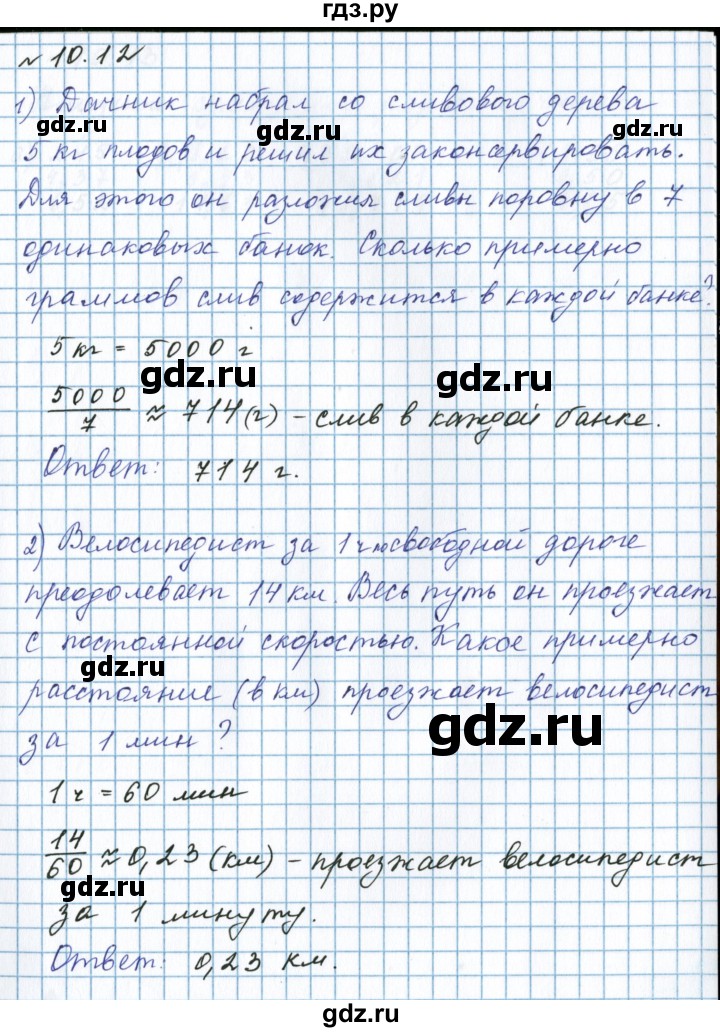 гдз.ру
№ 10.12
1) Дачник набрал со сливового дерева
gdz.ru gdz.ru gdz.ru
5 кг плодов и решил их законсервировать.
Для этого он разложил сливы поровну в 7
одинаковых банок. Сколько примерно
gdz.ru gdz.ru
граммов слив содержится в каждой банке?
5 кг = 5000 г
gdz.ru gdz.ru
5000/7 ≈ 714 (г) – слив в каждой банке.
Ответ: 714 г.
gdz.ru gdz.ru
2) Велосипедист за 1 ч по свободной дороге
преодолевает 14 км. Весь путь он проезжает
с постоянной скоростью. Какое примерно
gdz.ru gdz.ru
расстояние (в км) проезжает велосипедист
gdz.ru
за 1 мин?
1 ч = 60 мин
14/60 ≈ 0,23 (км) – проезжает велосипедист
gdz.ru gdz.ru
за 1 минуту.
Ответ: 0,23 км.
gdz.ru
gdz.ru